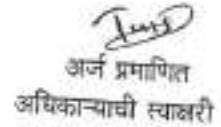 अर्ज प्रमाणित
अधिकाऱ्याची स्वाक्षरी